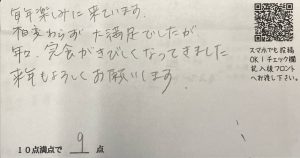 毎年楽しみに来ています。
相変わらず大満足でしたが
年々、完食がきびしくなってきました
来年もよろしくお願いします。
スマホでも投稿
OK!チェック欄
記入後フロント
へお渡し下さい。
10点満点で 9 点